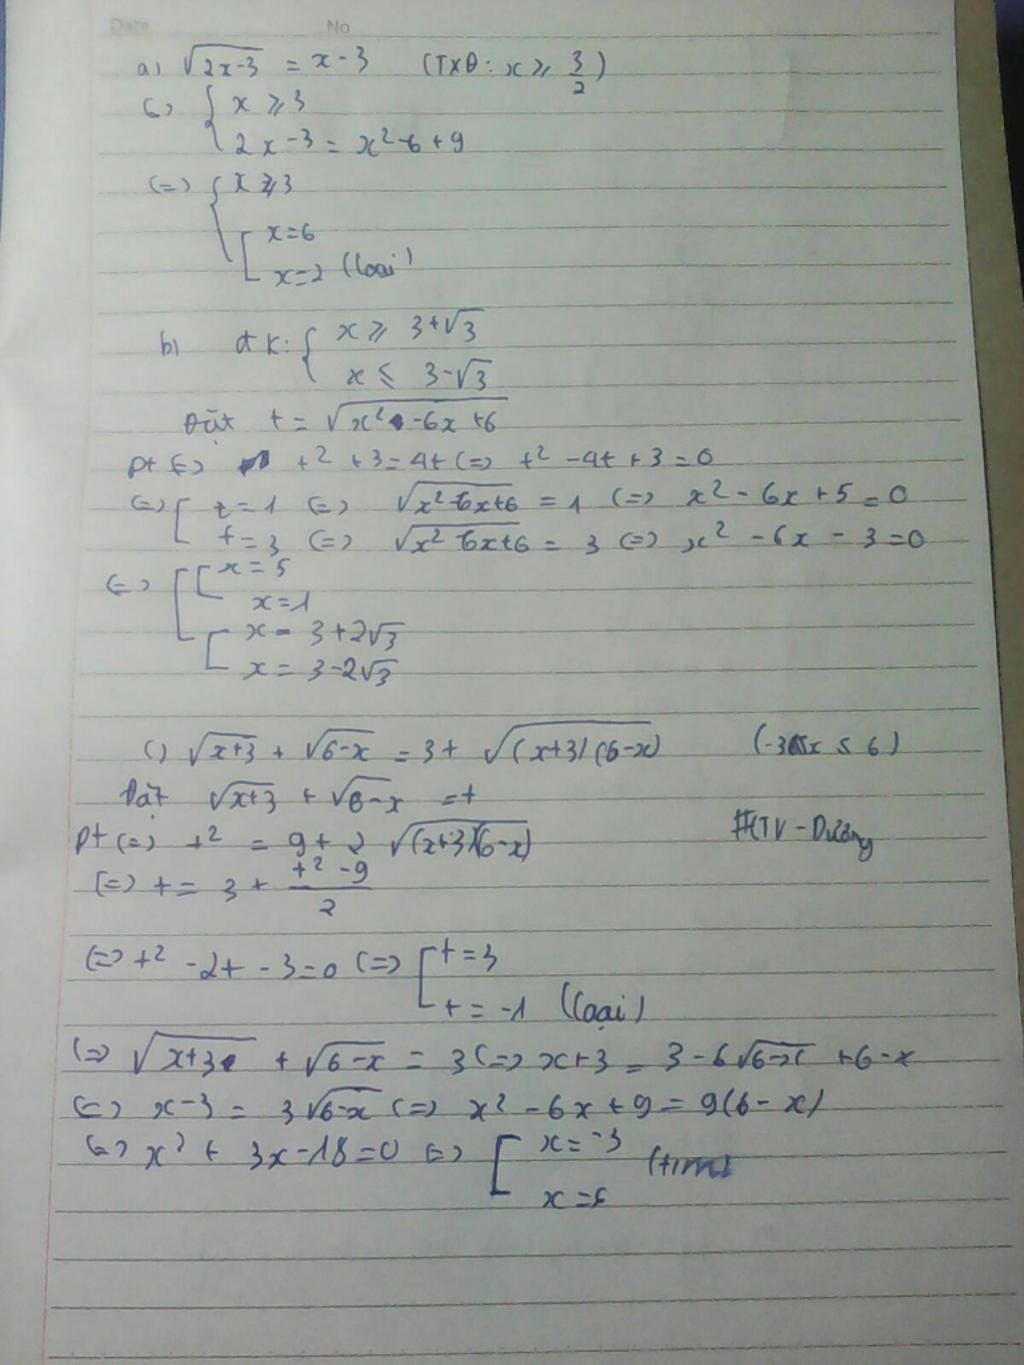 Date No
a) √(2x-3) = x-3 (TXĐ: x ≥ 3/2)
(=) { x ≥ 3
2x-3 = x²-6+9
(=) { x ≥ 3
[ x=6
x=2 (loại)
b) đk: { x ≥ 3+√3
x ≤ 3-√3
Đặt t = √(x²-6x+6)
pt (=) t² + 3 = 4t (=) t² - 4t + 3 = 0
(=) [ t=1 (=) √(x²-6x+6) = 1 (=) x² - 6x + 5 = 0
t=3 (=) √(x²-6x+6) = 3 (=) x² - 6x - 3 = 0
(=) [ [ x=5
x=1
[ x = 3+2√3
x = 3-2√3
c) √(x+3) + √(6-x) = 3 + √((x+3)(6-x)) (-3≤x ≤ 6)
Đặt √(x+3) + √(6-x) = t
pt (=) t² = 9 + 2 √((x+3)(6-x))
#CTV-Dương
(=) t = 3 + (t²-9)/2
(=) t² - 2t - 3 = 0 (=) [ t=3
t = -1 (loại)
(=) √(x+3) + √(6-x) = 3 (=) x+3 = 3 - 6√(6-x) + 6-x
(=) x-3 = 3√(6-x) (=) x² - 6x + 9 = 9(6-x)
(=) x² + 3x - 18 = 0 (=) [ x = -3
x = 6